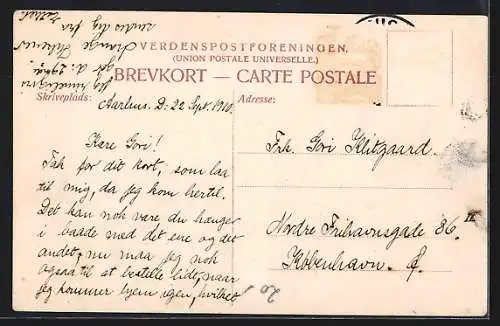 VERDENSPOSTFORENINGEN.
(UNION POSTALE UNIVERSELLE.)
BREVKORT — CARTE POSTALE
Skriveplads:
Adresse:
Aarhus. D. 22 Sept. 1910.
Kære Gori!
Tak for dit kort, som laa
til mig, da jeg kom hertil.
Det kan nok være du hænger
i baade med det ene og det
andet, nu maa jeg nok
ogsaa til at bestille lidt, naar
jeg kommer hjem igen, hvilket
Frk. Gori Klitgaard.
Nordre Frihavnsgade 86. II
København. Ø.
20